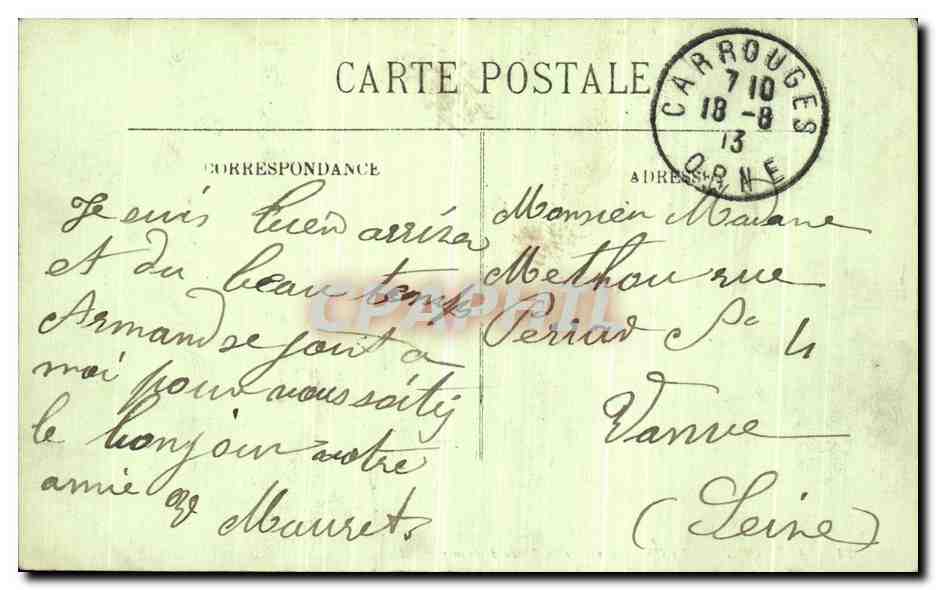 CARTE POSTALE
CARROUGES
7 10
18 -8
13
ORNE
CORRESPONDANCE
Je suis bien arriser
et du beau temps
Armand se joint a
moi pour vous
le bonjour votre
amie
Mauret
ADRESSE
Monsieu Madame
Methou rue
Perriad No 4
Vanve
(Seine)
CPAPHIL